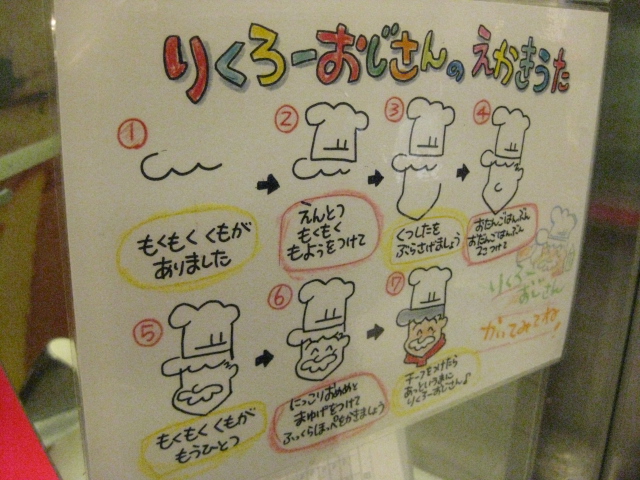 りくろーおじさんのえかきうた
①
もくもく くもが
ありました
②
えんとつ
もくもく
もようをつけて
③
くつしたを
ぶらさげましょう
④
おだんごはんぶん
おだんごはんぶん
2こつけて
⑤
もくもく くもが
もうひとつ
⑥
にっこりおめめと
まゆげをつけて
ふっくらほっぺをかきましょう
⑦
チーフをつけたら
あっというまに
りくろーおじさん♪
りくろー
おじさん
かいてみてね!